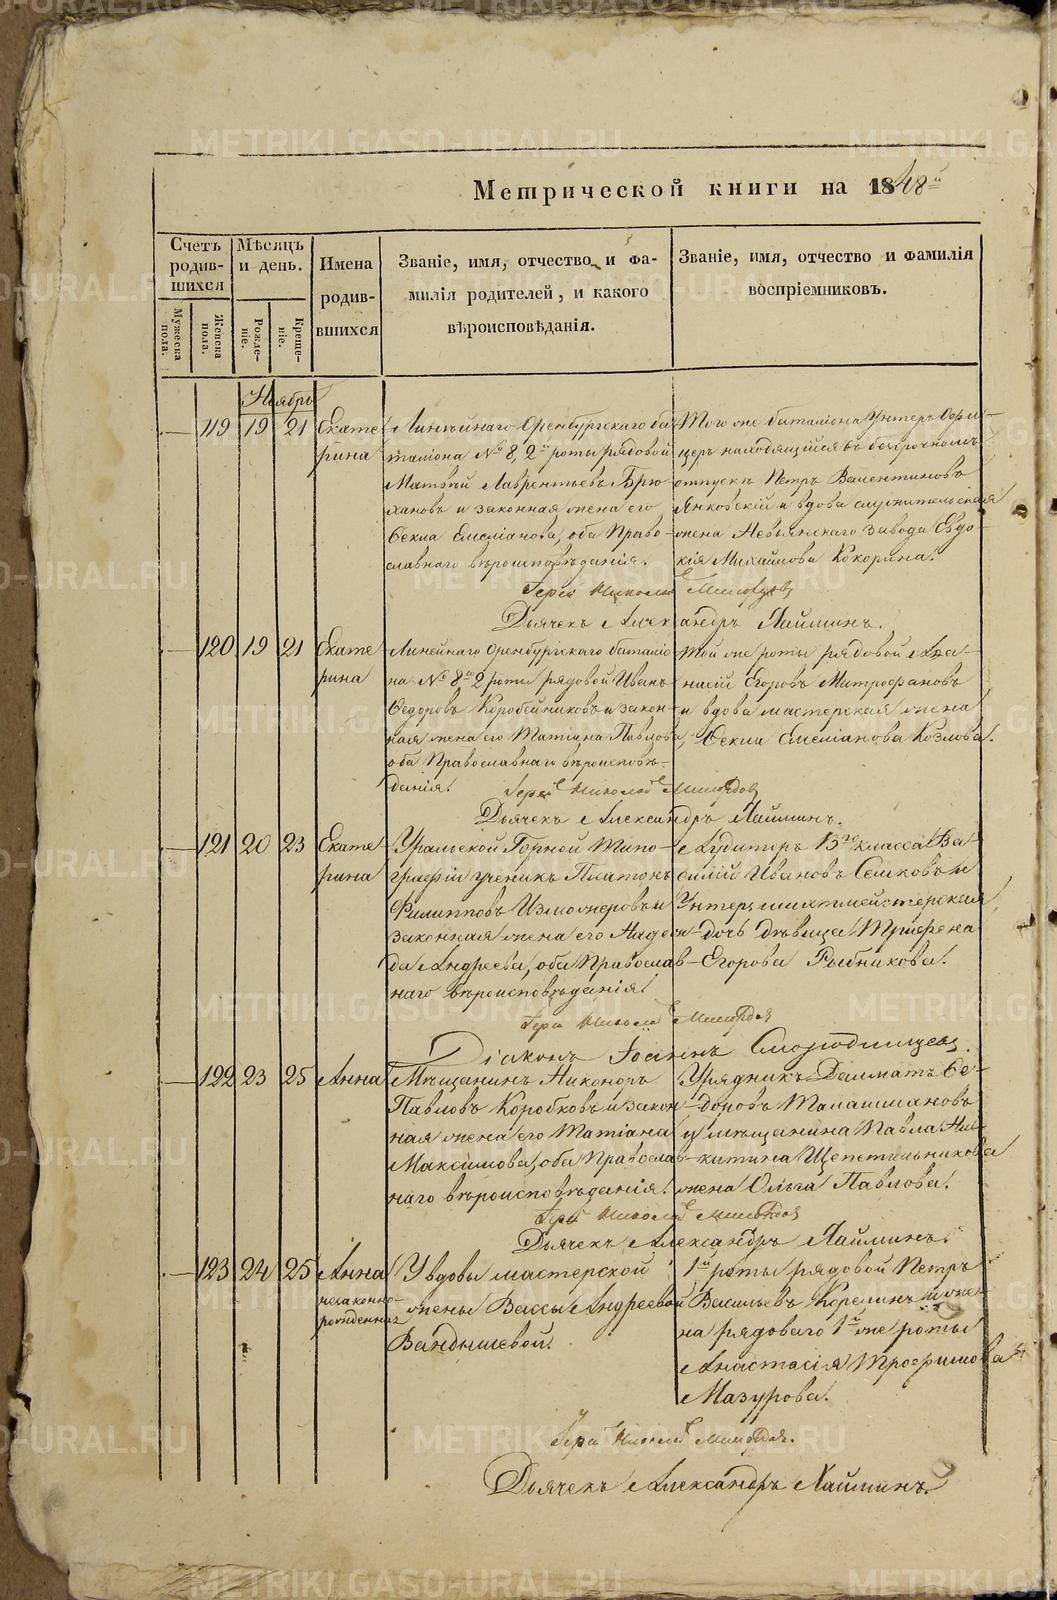 Метрической книги на 1848й
Счетъ родив-шихся
Мѣсяцъ и день.
Имена родив-вшихся
Званіе, имя, отчество и фа-
милія родителей, и какого
вѣроисповѣданія.
Званіе, имя, отчество и фамилія
воспріемниковъ.
Мужеска пола.
Женска пола.
Рожде-ніе.
Креще-ніе.
Ноябрь
119 19 21 Екате
рина
Линѣйнаго Оренбургскаго ба-
таліона № 8, 2й роты рядовой
Матвѣй Лаврентьевъ Брю-
хановъ и законная жена его
Ѳекла Емеліанова, оба Право-
славнаго вѣроисповѣданія.
Того же баталіона Унтеръ Офи-
церъ находящійся въ безсрочномъ
отпускѣ Петръ Валентиновъ
Янковскій и вдова служительская
жена Невьянскаго завода Евдо-
кія Михайлова Кокорина.
Іерей Николай
Дьячекъ Александръ Лайминъ.
120 19 21 Екате
рина
Линейнаго Оренбургскаго баталіо
на № 8го 2 роты рядовой Иванъ
Ѳедоровъ Коробейниковъ и закон-
ная жена его Татіана Павлова,
оба Православнаго вѣроисповѣ-
данія.
Той же роты рядовой Аѳа-
насій Егоровъ Митрофановъ
и вдова мастерская жена
Ѳекла Емеліанова Козлова.
Іерей Николай
Дьячекъ Александръ Лайминъ.
121 20 23 Екате
рина
Уральской Горной Типо-
графіи ученикъ Платонъ
Филипповъ Изможеровъ и
законная жена его Надеж-
да Андреева, оба Православ-
наго вѣроисповѣданія.
Аудиторъ 13го класса Ва-
силій Ивановъ Сѣмковъ и
Унтеръ шихтмейстерская
дочь дѣвица Трифена
Егорова Рыбникова.
Іерей Николай
Діаконъ Іоаннъ Смородинцевъ.
122 23 25 Анна
Мѣщанинъ Никоноръ
Павловъ Коробковъ и закон-
ная жена его Татіана
Максимова, оба Православ-
наго вѣроисповѣданія.
Урядникъ Далматъ Ѳе-
доровъ Малашмановъ
и мѣщанина Павла Ни-
китина Щепетильникова
жена Ольга Павлова.
Іерей Николай
Дьячекъ Александръ Лайминъ.
123 24 25 Анна
незаконно-
рожденная
У вдовы мастерской
жены Вассы Андреевой
Вандышевой.
1й роты рядовой Петръ
Васильевъ Корелинъ и же-
на рядоваго 1й же роты
Анастасія Трофимова
Мазурова.
Іерей Николай
Дьячекъ Александръ Лайминъ.
METRIKI.GASO-URAL.RU